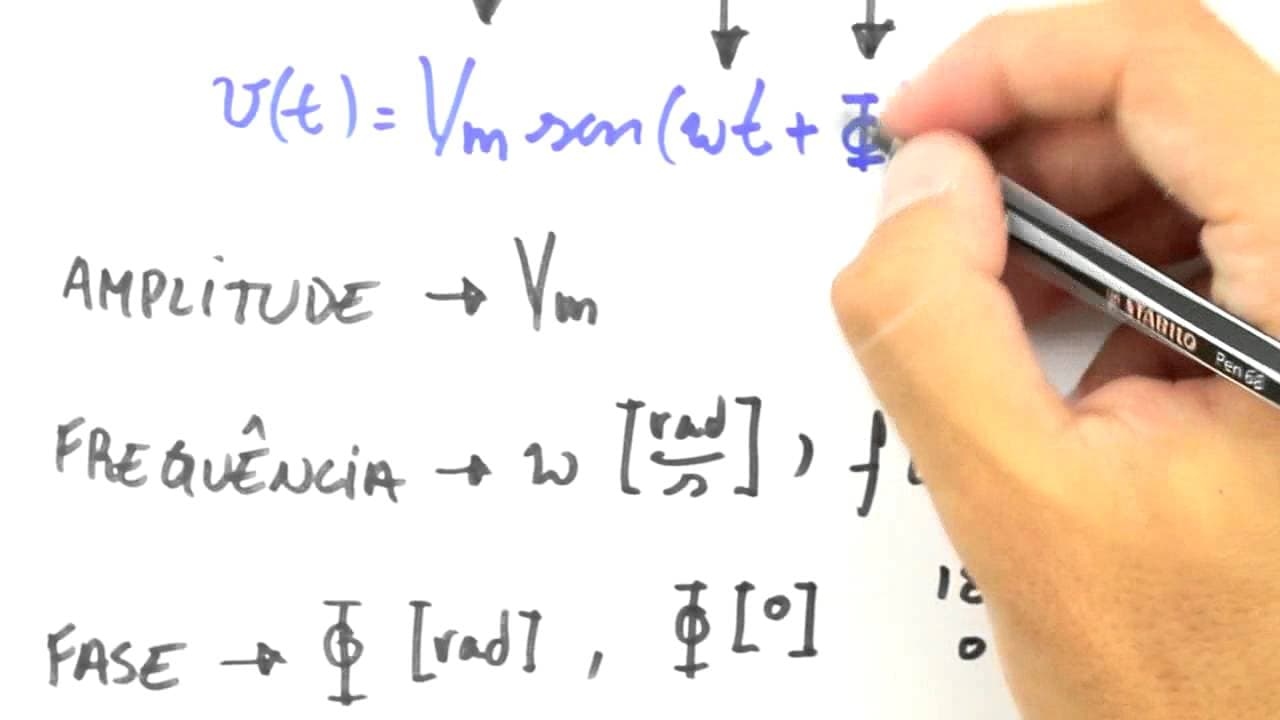 v(t) = Vm sen(wt + Φ
AMPLITUDE → Vm
FREQUÊNCIA → w [rad/s], f
FASE → Φ [rad], Φ [°]
STABILO Pen 68